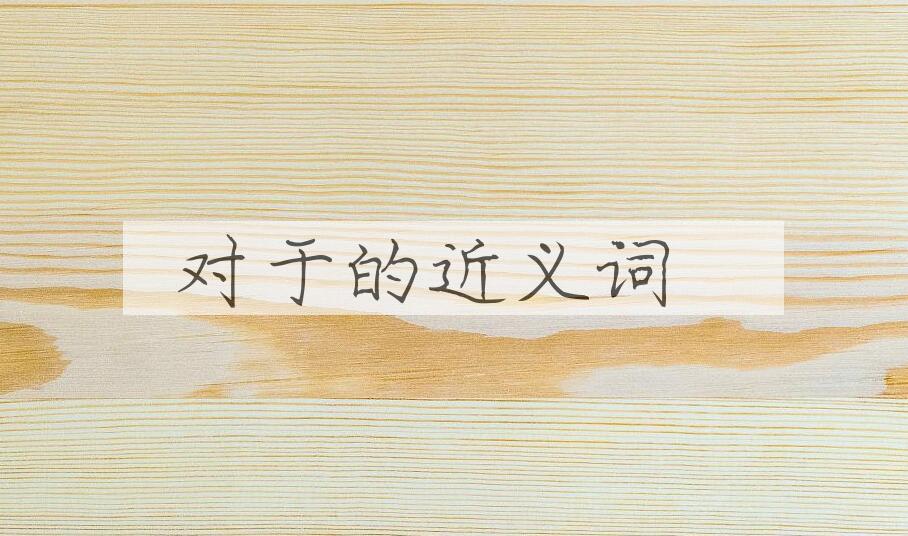 对于的近义词